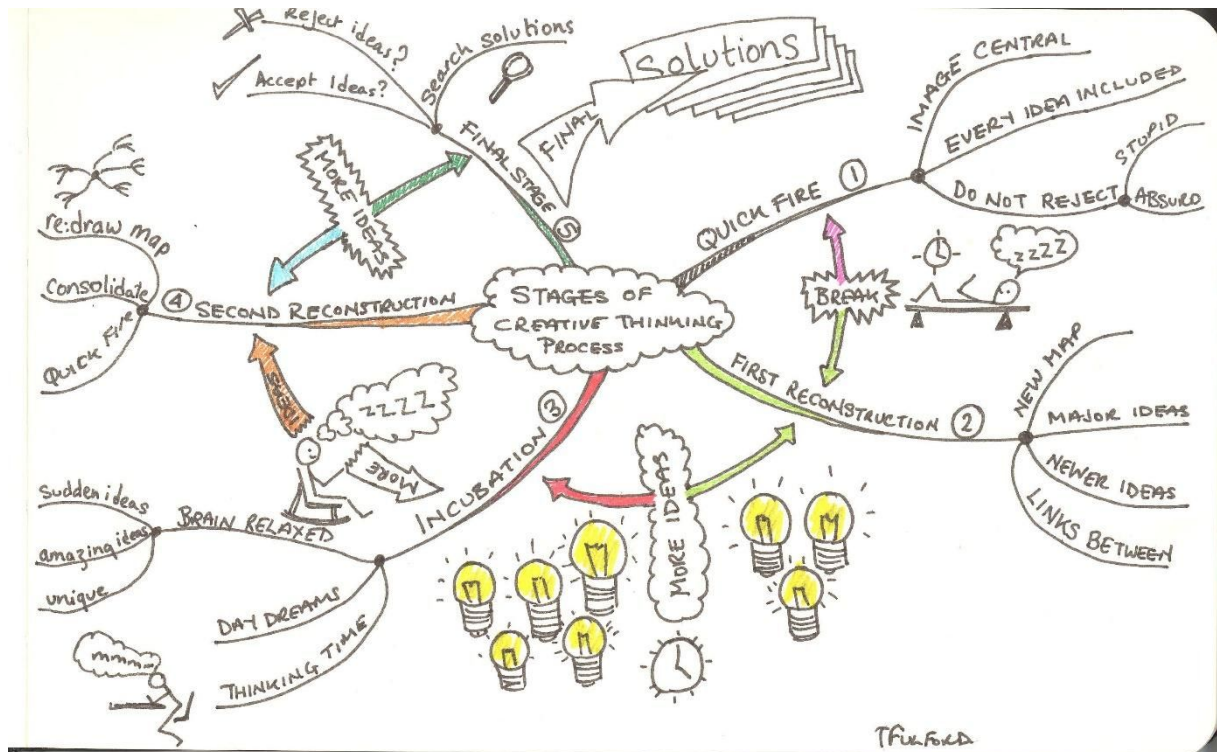 STAGES OF
CREATIVE THINKING
PROCESS
QUICK FIRE 1
IMAGE CENTRAL
EVERY IDEA INCLUDED
DO NOT REJECT
STUPID
ABSURD
BREAK
zzzz
FIRST RECONSTRUCTION 2
NEW MAP
MAJOR IDEAS
NEWER IDEAS
LINKS BETWEEN
MORE IDEAS
INCUBATION 3
BRAIN RELAXED
sudden ideas
amazing ideas
unique
DAY DREAMS
THINKING TIME
mmmm
zzzz
MORE
SECOND RECONSTRUCTION 4
re:draw map
Consolidate
QUICK FIRE
MORE IDEAS
FINAL STAGE 5
Reject ideas?
Accept Ideas?
Search solutions
FINAL
Solutions
TFULFORD